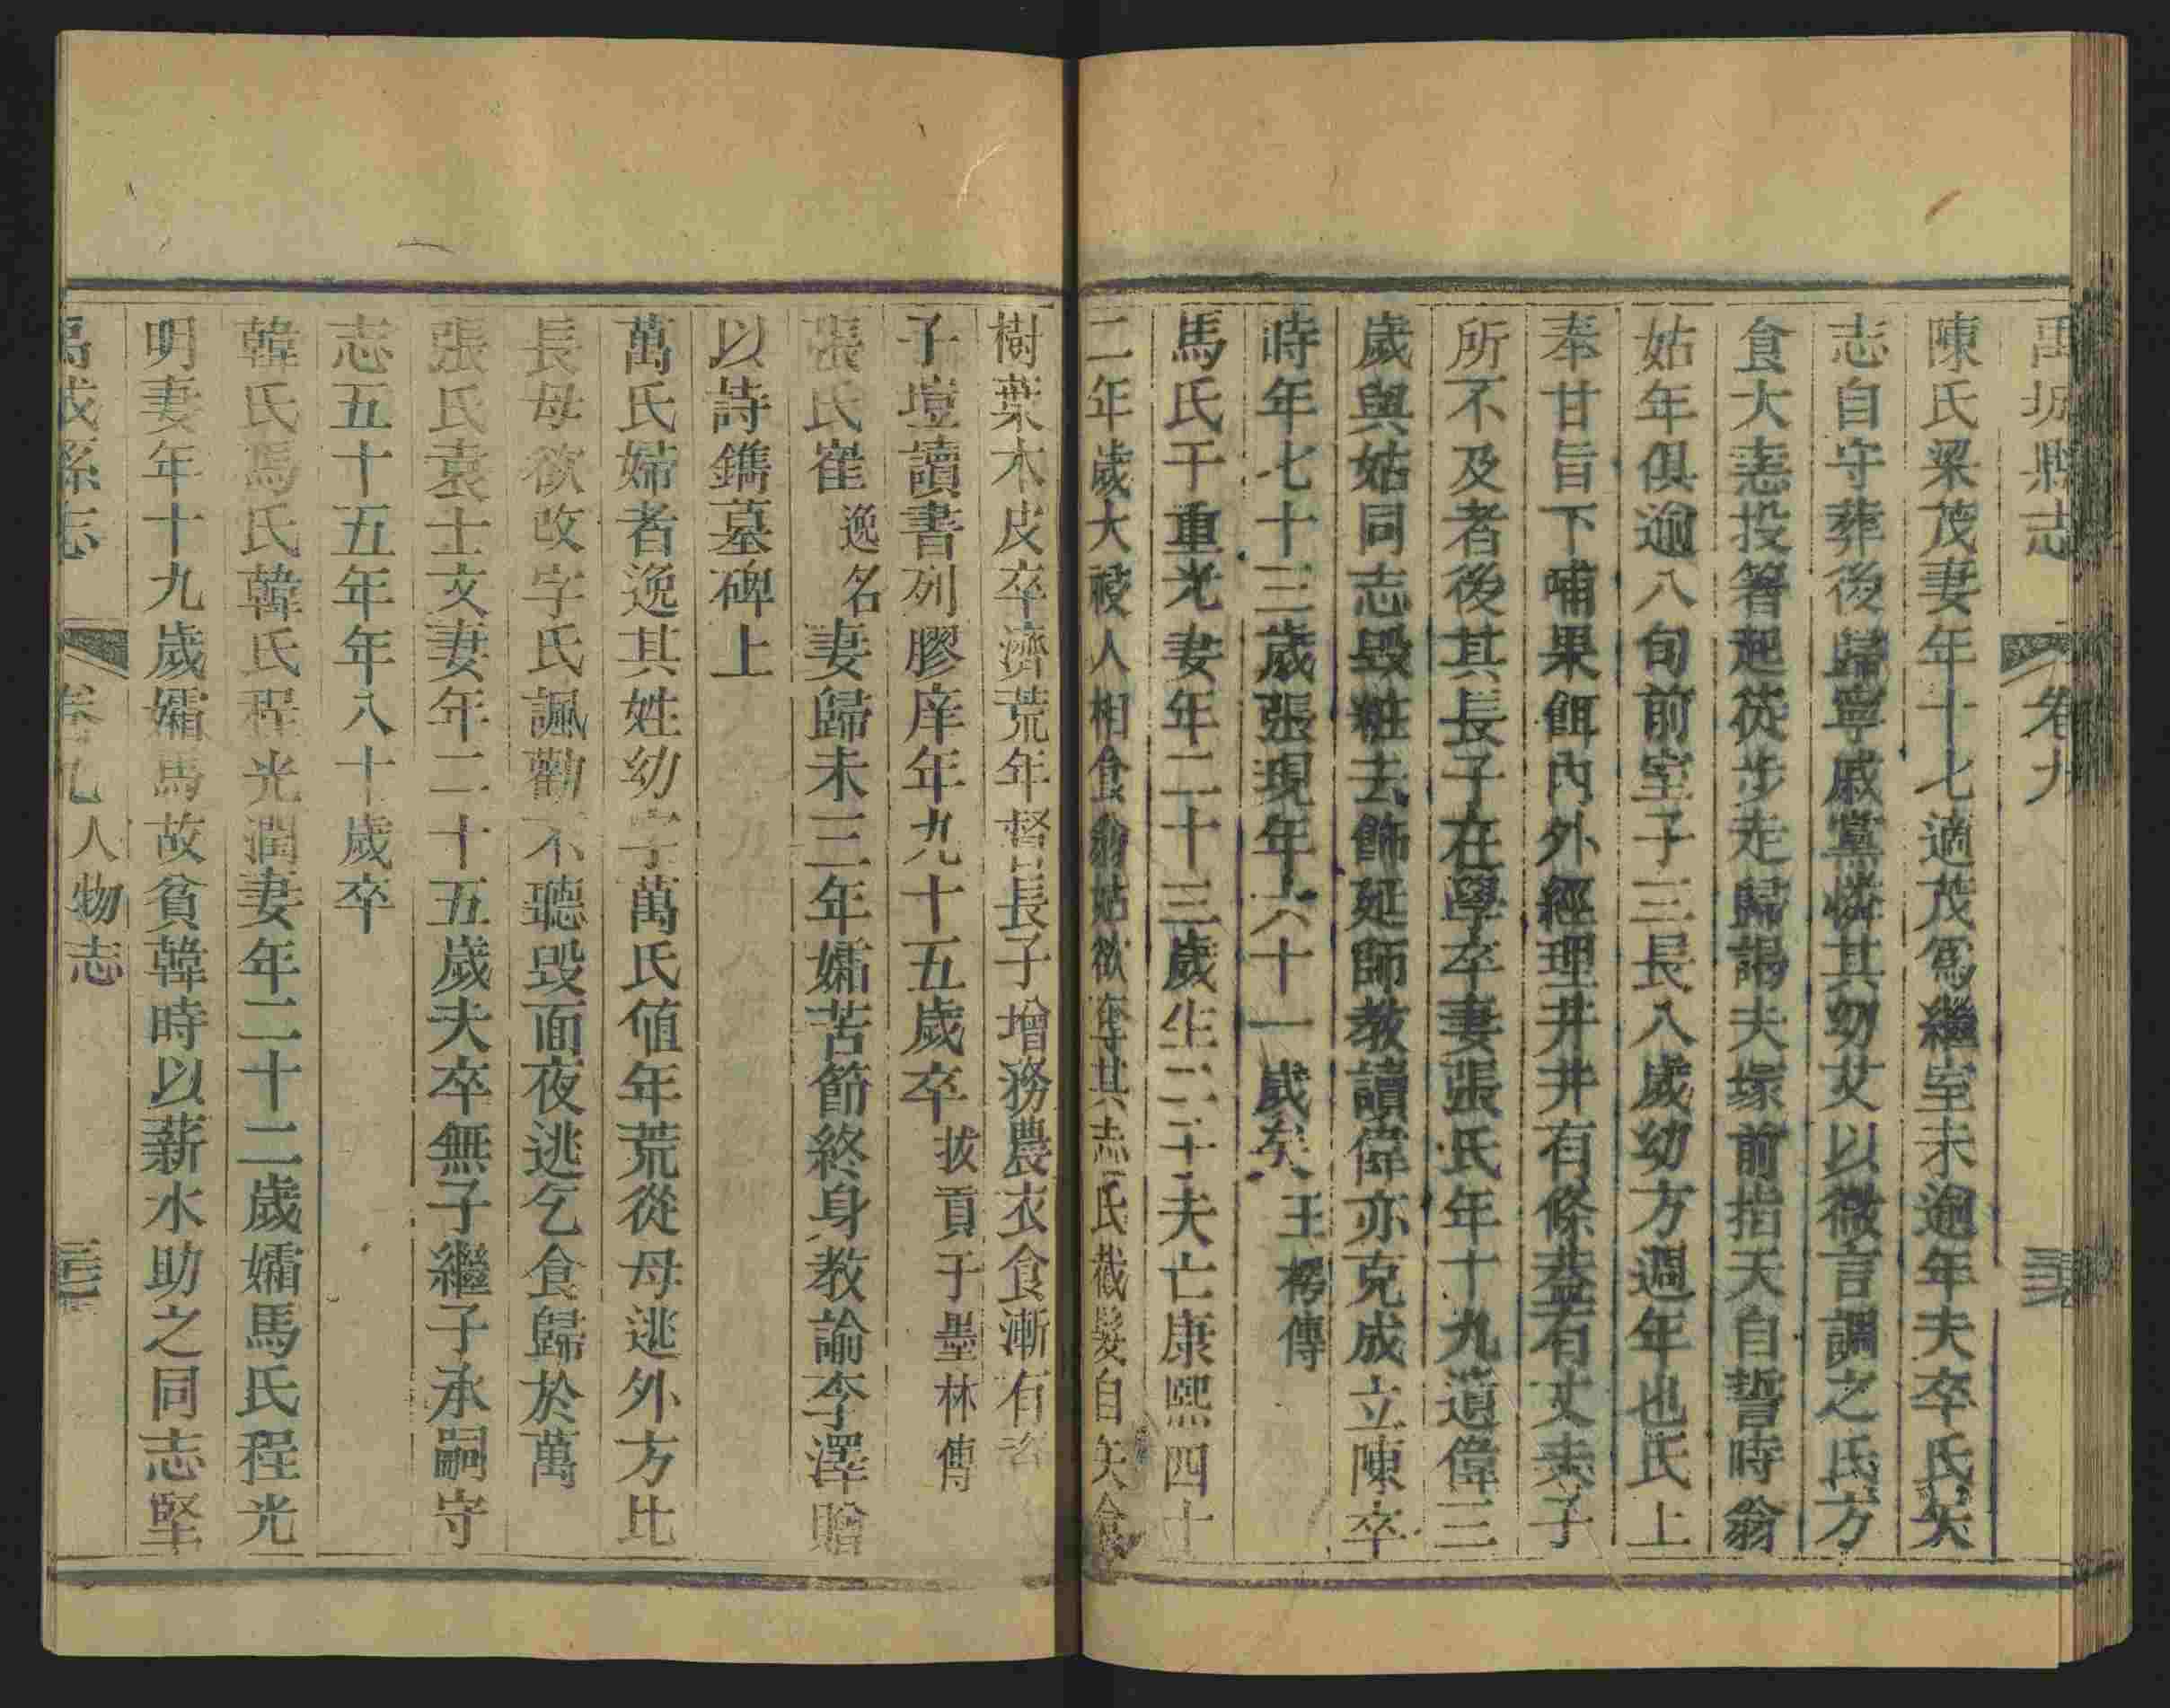 禹城縣志 卷九
陳氏梁茂妻年十七適茂爲繼室未逾年夫卒氏矢
志自守葬後歸寧戚黨憐其幼艾以微言調之氏方
食大恚投箸起從步走歸謁夫塚前指天自誓時翁
姑年俱逾八旬前室子三長八歲幼方週年也氏上
奉甘旨下哺果餌內外經理井井有條葢有丈夫子
所不及者後其長子在學卒妻張氏年十九遺偉三
歲與姑同志毀粧去飾延師教讀偉亦克成立陳卒
時年七十三歲張現年六十一歲矣 王樗傳
馬氏于重光妻年二十三歲生二子夫亡康熙四十
二年歲大祲人相食翁姑欲奪其志氏截髮自矢食
樹葉木皮卒濟荒年督長子增務農衣食漸有
子塏讀書列膠庠年九十五歲卒 拔貢于墨林傳
張氏崔逸名妻歸未三年孀苦節終身教諭李澤贈
以詩鐫墓碑上
萬氏婦者逸其姓幼字萬氏値年荒從母逃外方比
長母欲改字氏諷勸不聽毀面夜逃乞食歸於萬
張氏袁士文妻年二十五歲夫卒無子繼子承嗣守
志五十五年年八十歲卒
韓氏馬氏韓氏程光潤妻年二十二歲孀馬氏程光
明妻年十九歲孀馬故貧韓時以薪水助之同志堅
禹城縣志 卷九 人物志